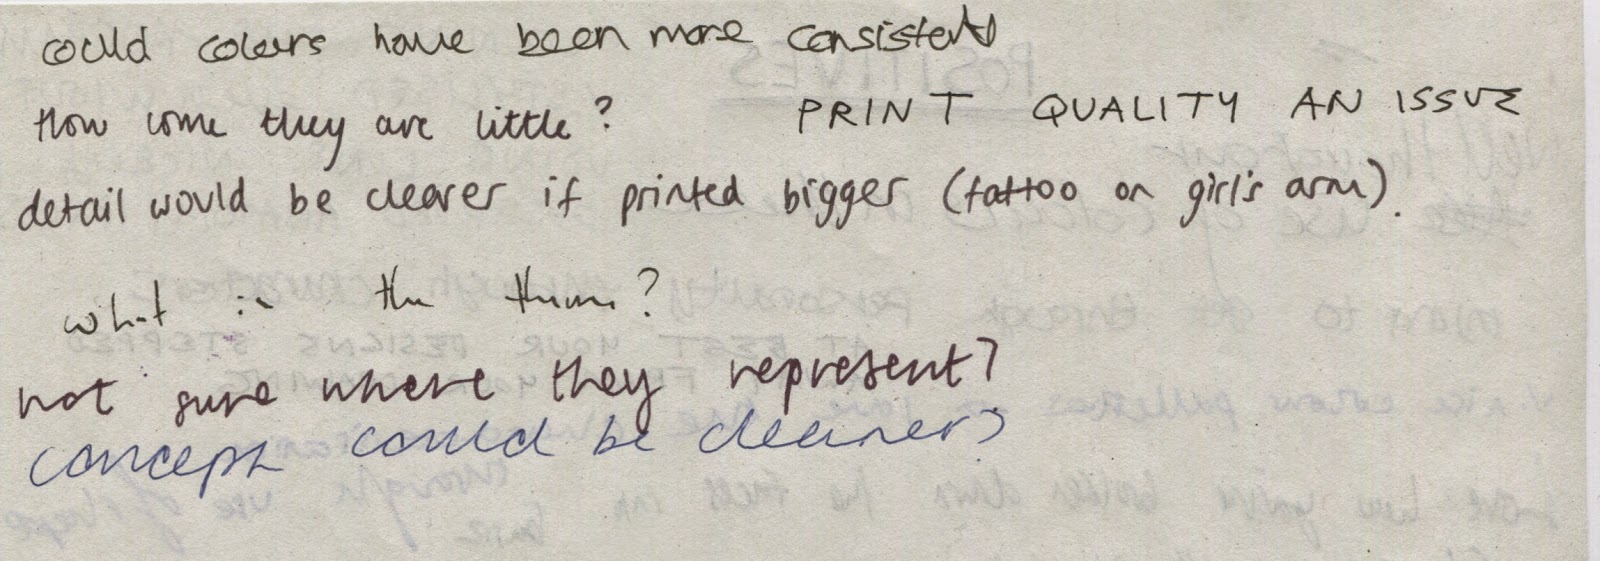 could colours have been more consistent
How come they are little?
PRINT QUALITY AN ISSUE
detail would be clearer if printed bigger (tattoo on girl's arm).
what is the theme?
not sure where they represent?
concept could be clearer?